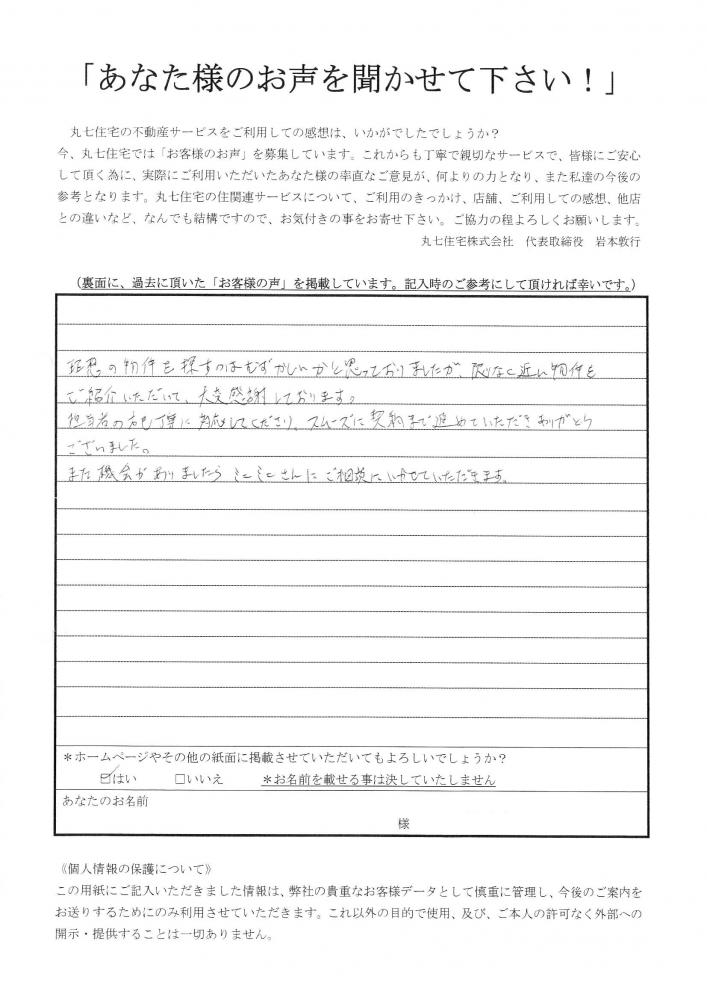 「あなた様のお声を聞かせて下さい！」
丸七住宅の不動産サービスをご利用しての感想は、いかがでしたでしょうか？
今、丸七住宅では「お客様のお声」を募集しています。これからも丁寧で親切なサービスで、皆様にご安心
して頂く為に、実際にご利用いただいたあなた様の率直なご意見が、何よりの力となり、また私達の今後の
参考となります。丸七住宅の住関連サービスについて、ご利用のきっかけ、店舗、ご利用しての感想、他店
との違いなど、なんでも結構ですので、お気付きの事をお寄せ下さい。ご協力の程よろしくお願いします。
丸七住宅株式会社　代表取締役　岩本敦行
（裏面に、過去に頂いた「お客様の声」を掲載しています。記入時のご参考にして頂ければ幸いです。）
理想の物件を探すのはむずかしいかと思っておりましたが、限りなく近い物件を
ご紹介いただいて、大変感謝しております。
担当者の方も丁寧に対応してくださり、スムーズに契約まで進めていただきありがとう
ございました。
また機会がありましたらミニミニさんにご相談にいかせていただきます。
＊ホームページやその他の紙面に掲載させていただいてもよろしいでしょうか？
☑はい　□いいえ　＊お名前を載せる事は決していたしません
あなたのお名前
様
《個人情報の保護について》
この用紙にご記入いただきました情報は、弊社の貴重なお客様データとして慎重に管理し、今後のご案内を
お送りするためにのみ利用させていただきます。これ以外の目的で使用、及び、ご本人の許可なく外部への
開示・提供することは一切ありません。